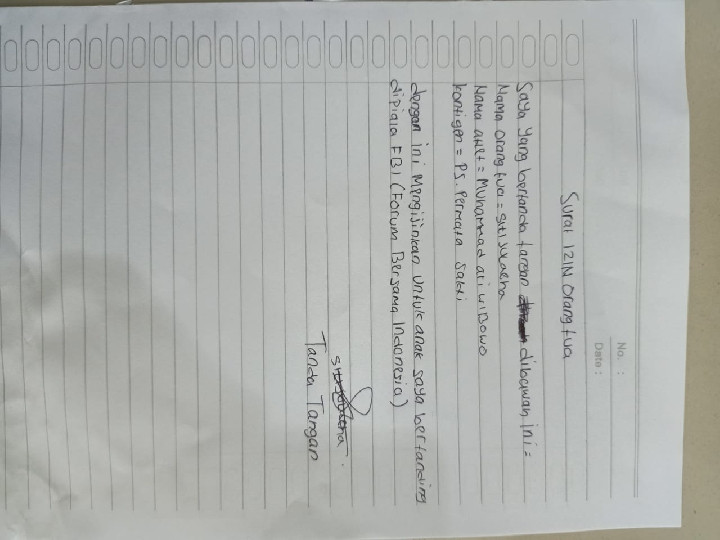 No. :
Date :
Surat IZIN orang tua
Saya yang bertanda tangan dibawah ini =
Nama orang tua = Siti Julaeha
Nama atlet = Muhammad ari wiBowo
kontigen = PS. Permata Sakti
dengan ini Mengijinkan untuk anak saya bertanding
dipiala FBI (Forum Bersama Indonesia)
Tanda Tangan